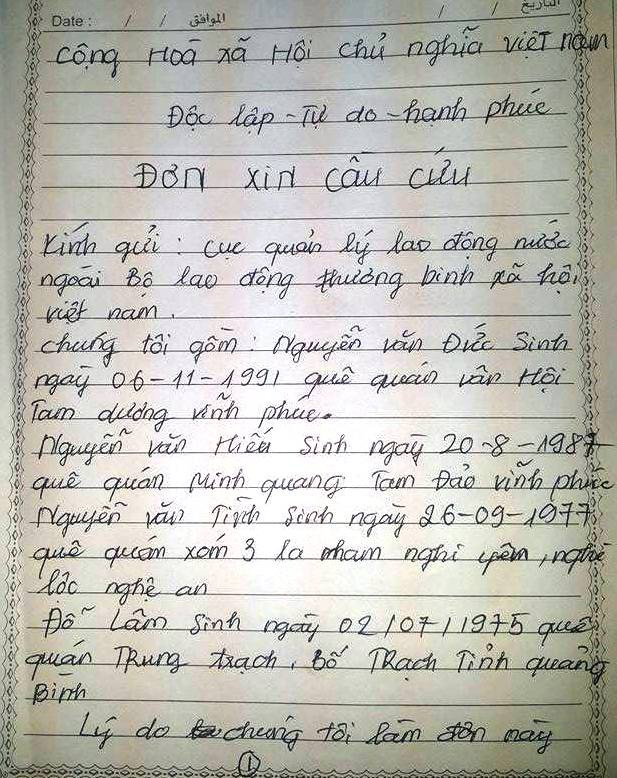 Date : / / الموافق / / التاريخ
cộng Hoà xã Hội chủ nghĩa việt nam
Độc lập - Tự do - hạnh phúc
ĐƠN XIN CẦU CỨU
Kính gửi : cục quản lý lao động nước
ngoài Bộ lao động thương binh xã hội
việt nam .
chúng tôi gồm : Nguyễn văn Đức Sinh
ngày 06-11-1991 quê quán vân Hội
Tam dương vĩnh phúc.
Nguyễn văn Hiếu Sinh ngày 20-8-1987
quê quán Minh quang Tam Đảo vĩnh phúc
Nguyễn văn Tịnh Sinh ngày 26-09-1977
quê quán xóm 3 la nham nghi yên , nghi
lộc nghệ an
Đỗ Lâm Sinh ngày 02/07/1975 quê
quán Trung trạch , Bố Trạch Tỉnh quảng
Bình
Lý do chúng tôi làm đơn này
1